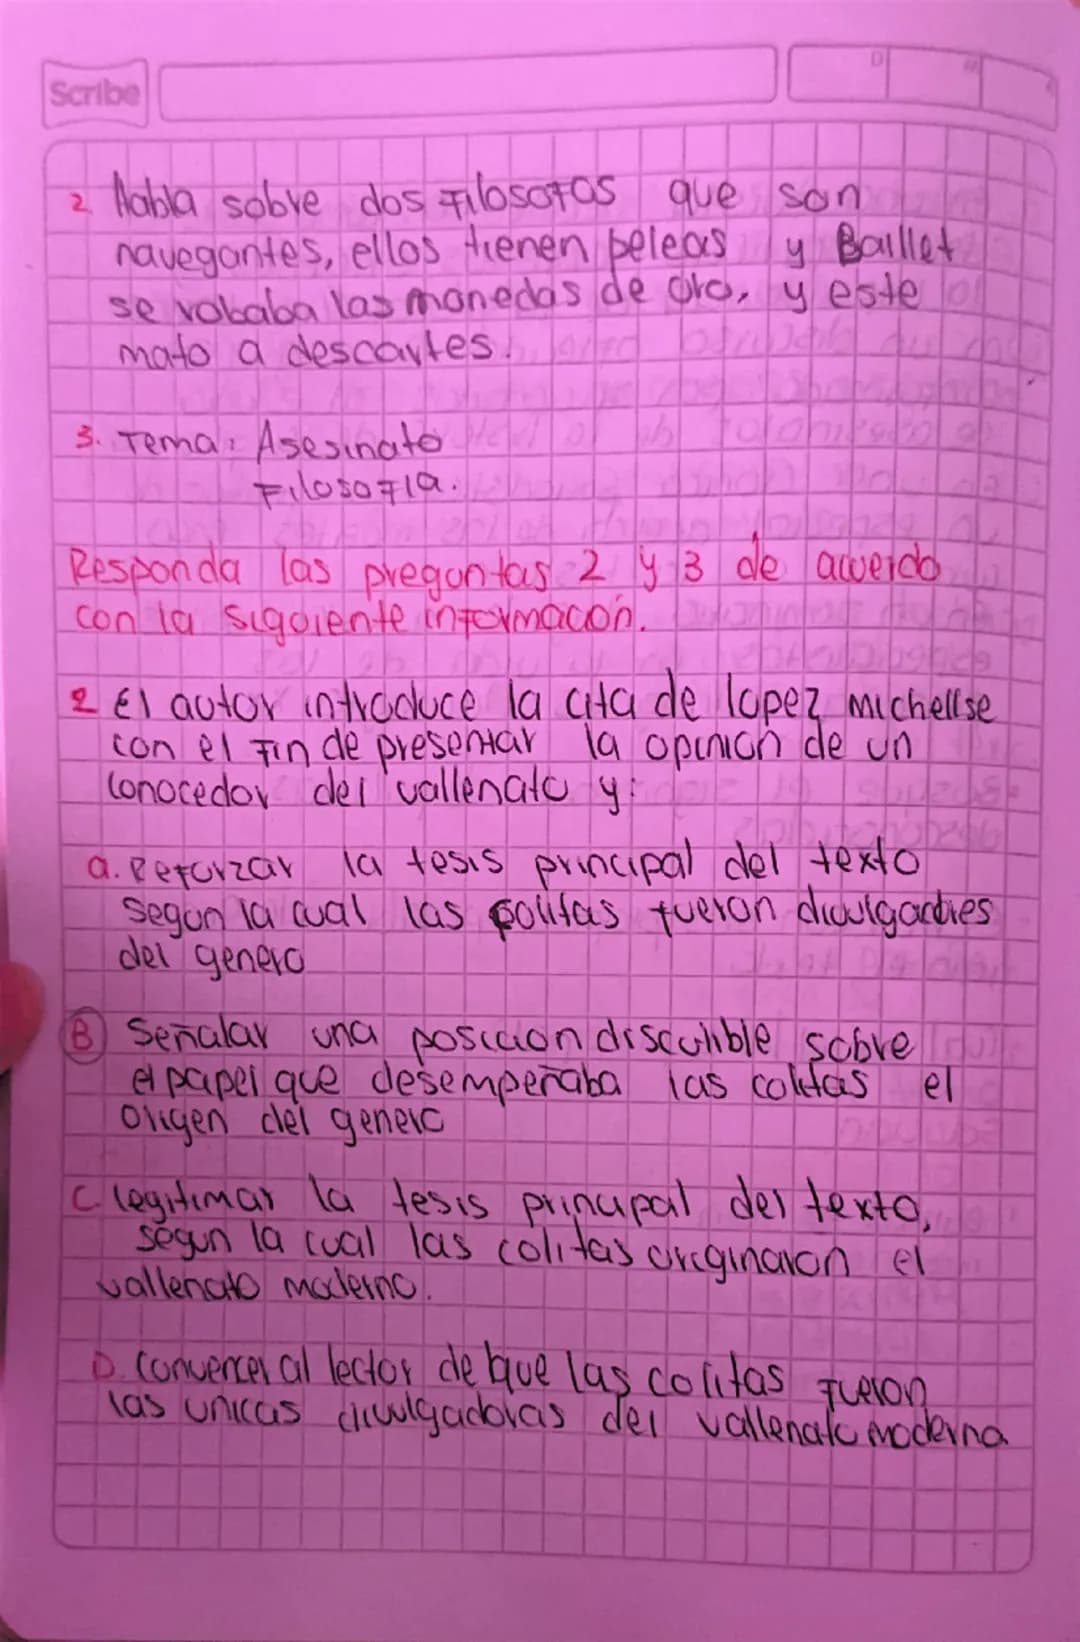 Scribe
2. Habla sobre dos Filosofos que son
navegantes, ellos tienen peleas y Baillet
se robaba las monedas de oro, y este
mato a descartes.
3. Tema: Asesinato
Filosofia.
Responda las preguntas 2 y 3 de acuerdo
con la siguiente informacon.
2 El autor introduce la cita de lopez michellse
con el Fin de presentar la opinion de un
conocedor del vallenato y:
a. Reforzar la tesis principal del texto
segun la cual las colitas fueron
del genero
B Señalar una posicion discutible sobre
el papel que desempeñaba las colitas el
origen del genero
C legitimar la tesis principal del texto,
segun la cual las colitas originaron el
vallenato moderno.
D. convencer al lector de que las colitas Fueron
las unicas divulgadoras del vallenato moderna